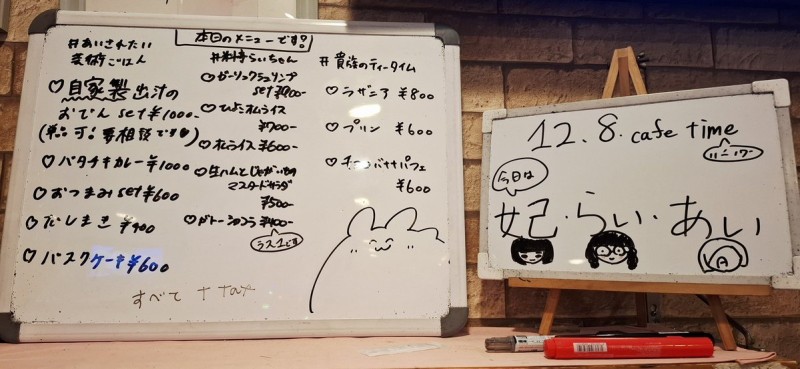 本日のメニューです!
#あいされたい
芸術ごはん
♡自家製出汁の
おでん set ¥1000-
(単品可!要相談です♥)
♡バタチキカレー ¥1000
♡おつまみset ¥600
♡だしまき ¥400
♡バスクケーキ ¥600
すべて + tax
らいちゃん
♡ガーリックシュリンプ
set ¥900-
♡ひよこオムライス
¥700-
♡オムライス ¥600-
♡生ハムとじゃがいもの
マスタードサラダ
¥500-
♡ガトーショコラ ¥400-
ラス1です
#貴族のティータイム
♡ラザニア ¥800
♡プリン ¥600
♡チョコバナナパフェ
¥600
12.8. cafe time
ハニワー
今日は
妃・らい・あい